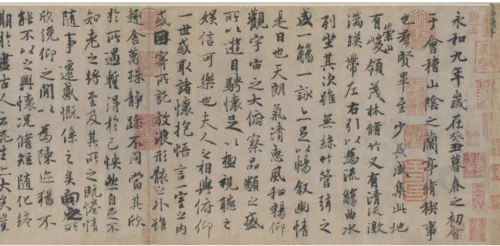 永和九年歲在癸丑暮春之初會
于會稽山陰之蘭亭脩稧事
也群賢畢至少長咸集此地
有崇山峻領茂林脩竹又有清流激
湍暎帶左右引以為流觴曲水
列坐其次雖無絲竹管弦之
盛一觴一詠亦足以暢敘幽情
是日也天朗氣清惠風和暢仰
觀宇宙之大俯察品類之盛
所以遊目騁懷足以極視聽之
娛信可樂也夫人之相與俯仰
一世或取諸懷抱悟言一室之內
或因寄所託放浪形骸之外雖
趣舍萬殊靜躁不同當其欣
於所遇暫得於己怏然自足不
知老之將至及其所之既惓情
隨事遷感慨係之矣向之所
欣俛仰之閒以為陳迹猶不
能不以之興懷況脩短隨化終
期於盡古人云死生亦大矣豈